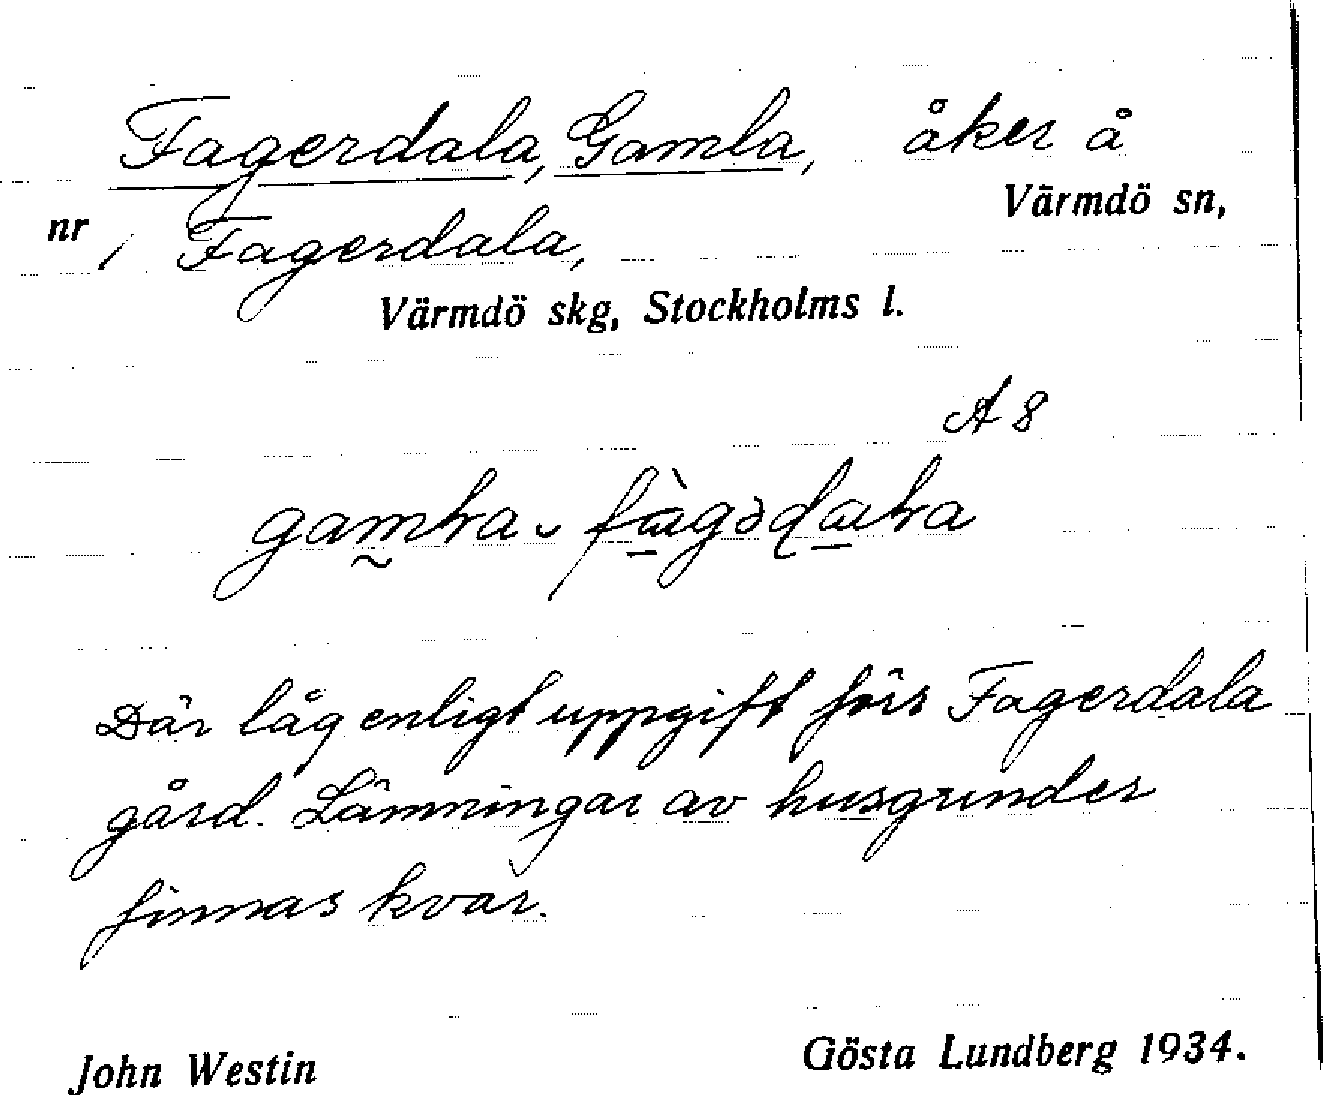 Fagerdala, Gamla, åker å
Värmdö sn,
nr / Fagerdala,
Värmdö skg, Stockholms l.
A 8
Där låg enligt uppgift förr Fagerdala
gård. Lämningar av husgrunder
finnas kvar.
John Westin Gösta Lundberg 1934.